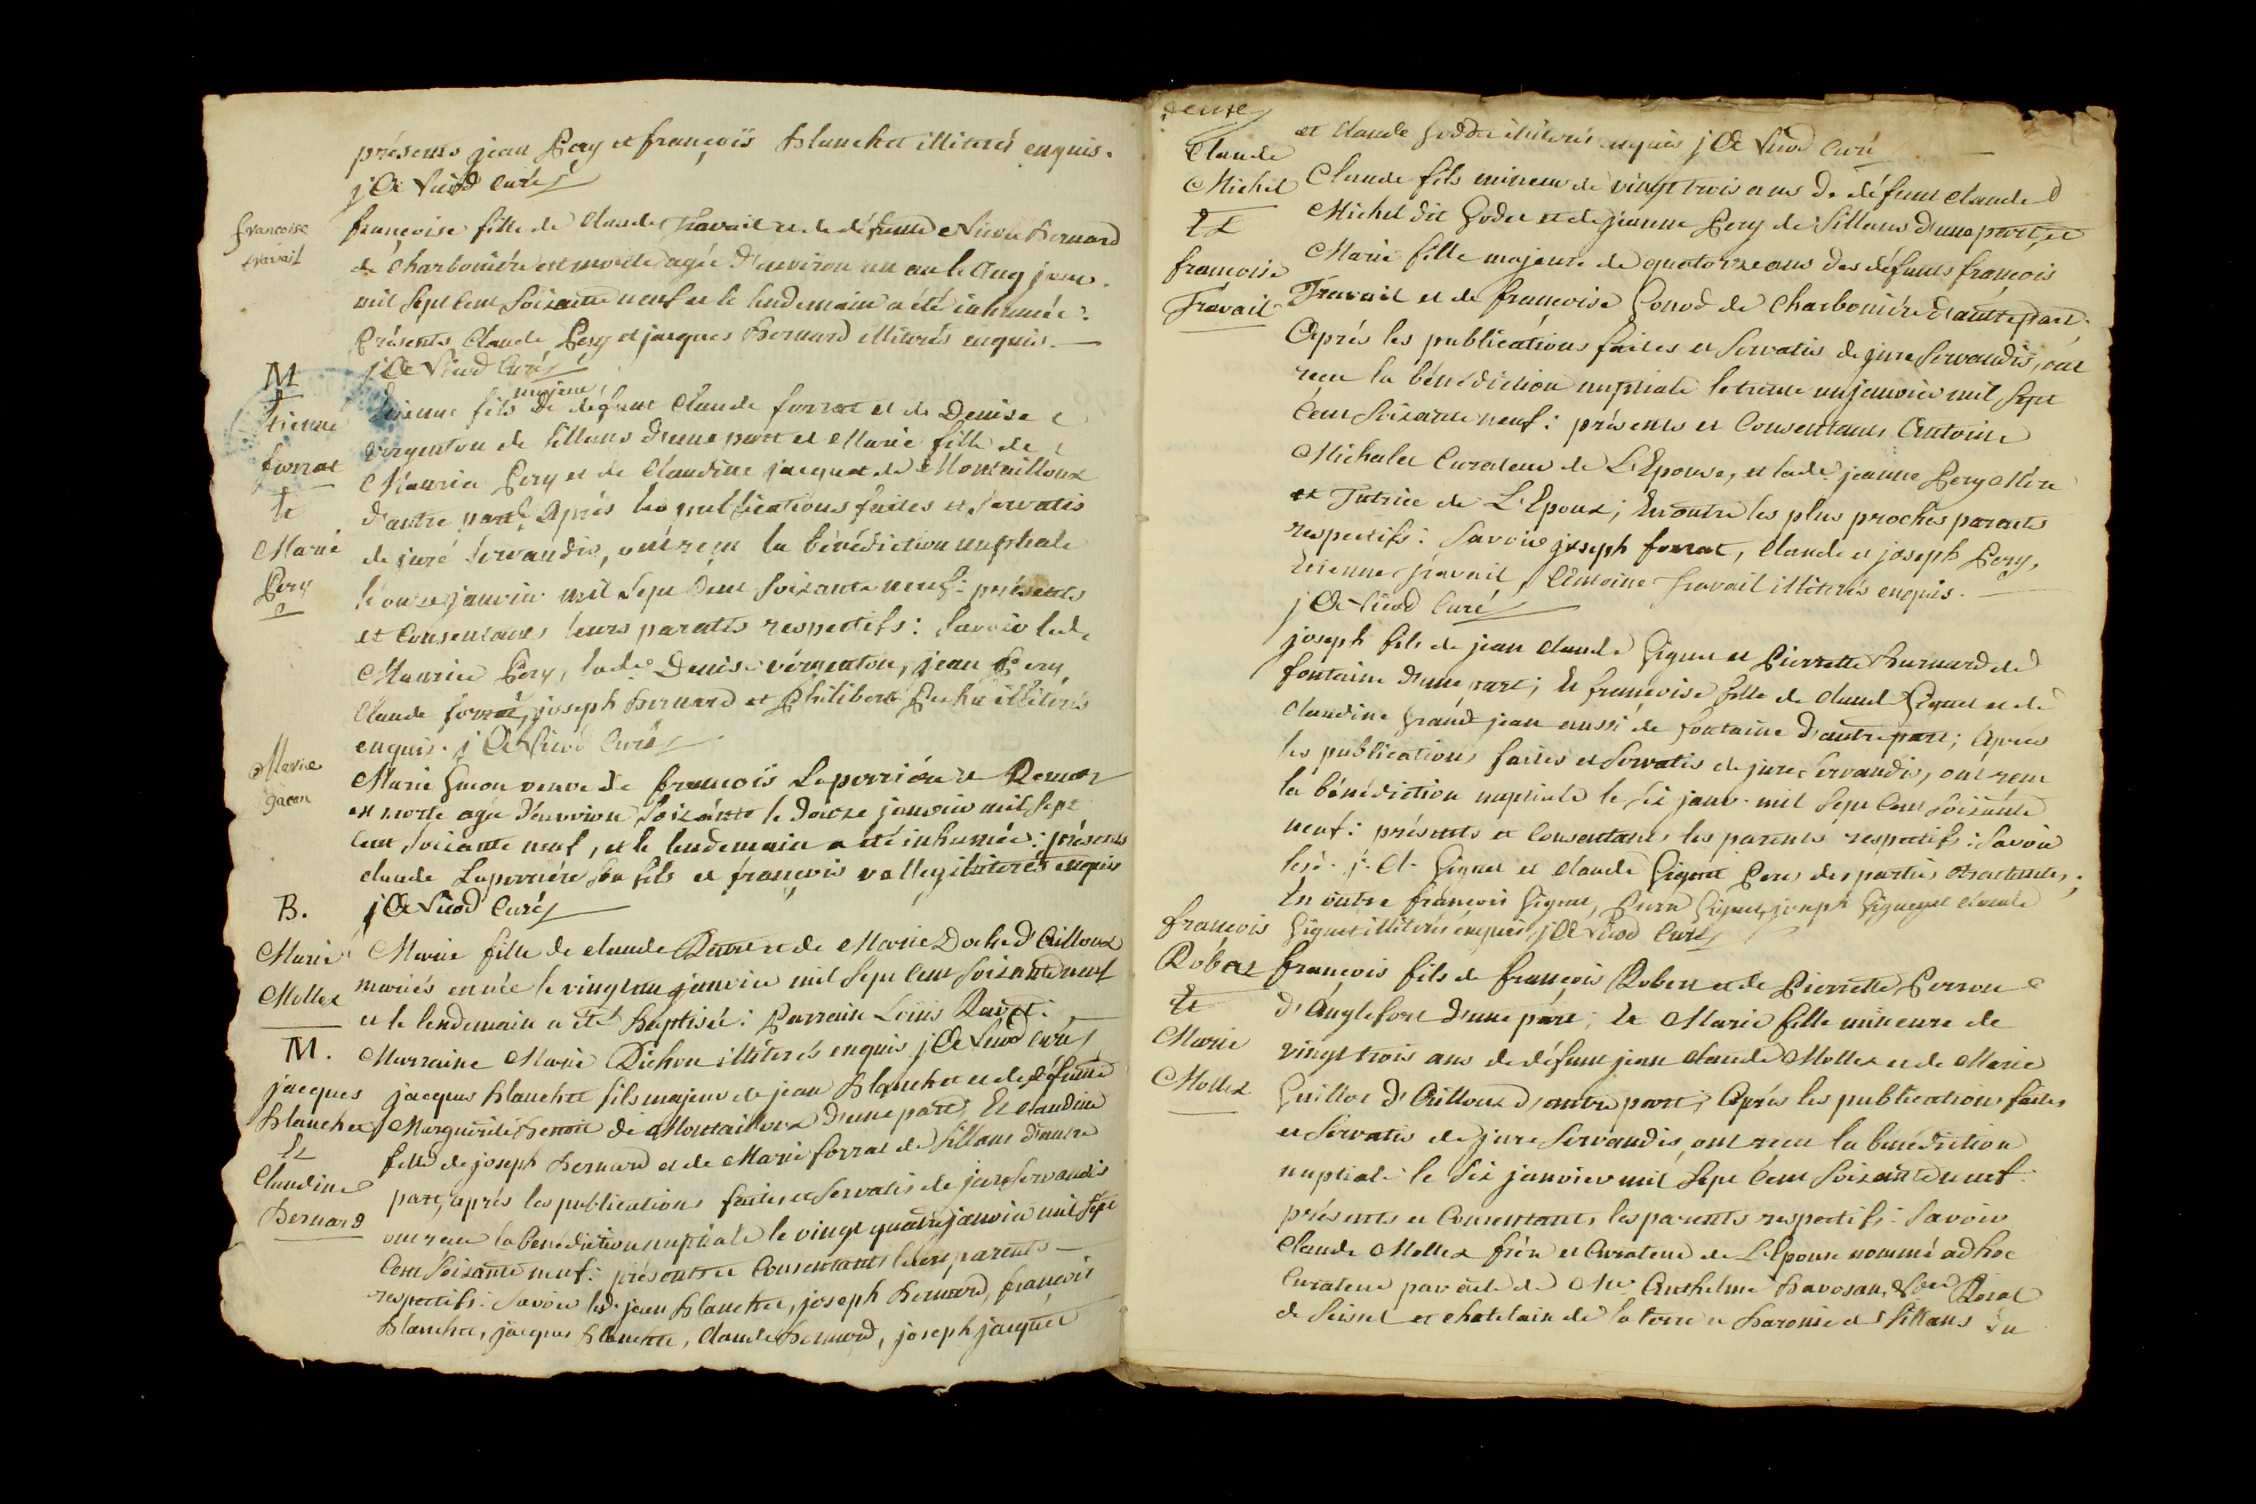 présents jean Pery et françois blanchet illiterés enquis.
j Cl Vuiod Curé
francoise
travail
françoise fille de Claude Travail et de défunte Nicole bernard
de Charboniére est morte agée d'environ un an le cinq janv.
mil Sept Cent Soixante neuf et le lendemain a été inhumée:
Présents Claude Pery et jacques bernard illiterés enquis.
j Cl Vuiod Curé
M
Etienne
forrat
Et
Marie
Pery
majeur
Etienne fils de défunt Claude forrat et de Denise
vergenton de Sillans d'une part et Marie fille de
Maurice Pery et de Claudine jacquet de Montailloux
d'autre part. Après les publications faites et Servatis
de juré Servandis, ont reçu la bénédiction nuptiale
le onze janvier mil Sept Cent Soixante neuf: présents
et Consentants leurs parents respectifs: Savoir led.
Maurice Pery, lade. Denise vergenton, jean Pery,
Claude forrat, joseph bernard et Philibert illiterés
enquis. j Cl Vuiod Curé
Marie
gacon
Marie veuve de françois Laperriére de
est morte agée d'environ Soixante le douze janvier mil Sept
Cent Soixante neuf, et le lendemain a été inhumée: présents
claude Laperriére Son fils et françois illiterés enquis
j Cl Vuiod Curé
B.
Marie
Mollex
Marie fille de claude et de Marie d'Ailloux
mariés est née le vingt un janvier mil Sept Cent Soixante neuf
et le lendemain a été Baptisée: Parrain Loüis
Marraine Marie Pichon illiterés enquis j Cl Vuiod Curé
M.
jacques
blanchet
Et
Claudine
bernard
jacques blanchet fils majeur de jean blanchet et de défunte
Marguerite de Montailloux d'une part; Et claudine
fille de joseph bernard et de Marie forrat de Sillans d'autre
part, après les publications faites et Servatis de jure Servandis
ont reçu la bénédiction nuptiale le vingt quatre janvier mil Sept
Cent Soixante neuf: présents et Consentants parents
respectifs: Savoir led. jean blanchet, joseph bernard, françois
blanchet, jacques blanchet, Claude bernard, joseph jacquet
deuxe
et Claude Godet illiterés enquis j Cl Vuiod Curé
Claude
Michel
Et
françoise
Travail
Claude fils mineur de vingt trois ans de défunt claude
Michel dit Godet et de jeanne Pery de Sillans d'une part, et
Marie fille majeure de quatorze ans des défunts françois
Travail et de françoise Gonod de Charboniére d'autre part.
Après les publications faites et Servatis de jure Servandis, ont
reçu la bénédiction nuptiale le trente un janvier mil Sept
Cent Soixante neuf: présents et Consentants Antoine
Michalet Curateur de L'Epouse, et lade. jeanne Pery Mére
et Tutrice de L'Epoux; En outre les plus proches parents
respectifs: Savoir joseph forrat, Claude et joseph Pery,
Etienne Travail, Antoine Travail illiterés enquis.
j Cl Vuiod Curé
joseph fils de jean claude Giguet et Pierrette bernard de
fontaine d'une part; Et françoise fille de claude Giguet et de
claudine Grand jean aussi de fontaine d'autre part; Après
les publications faites et Servatis de jure Servandis, ont reçu
la bénédiction nuptiale le Six janv. mil Sept Cent Soixante
neuf: présents et Consentants les parents respectifs: Savoir
lesd. j. Cl. Giguet et claude Giguet Peres des parties Contractantes;
En outre françois Giguet, Giguet, joseph Giguet et claude
Giguet illiterés enquis j Cl Vuiod Curé
françois
Robert
Et
Marie
Mollex
françois fils de françois Robert et de Pierrette Perron
d'Anglefort d'une part; Et Marie fille mineure de
vingt trois ans de défunt jean claude Mollex et de Marie
Guillot d'Ailloux d'autre part; Après les publications faites
et Servatis de jure Servandis, ont reçu la bénédiction
nuptiale le Six janvier mil Sept Cent Soixante neuf:
présents et Consentants les parents respectifs: Savoir
Claude Mollex frére et Curateur de L'Epouse nommé ad hoc
Curateur par acte de Me. Anthelme Royal
de Seissel et chatelain de la terre et baronie de Sillans